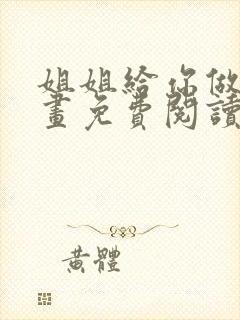 姐姐給你做
畫免費閱讀
黃體